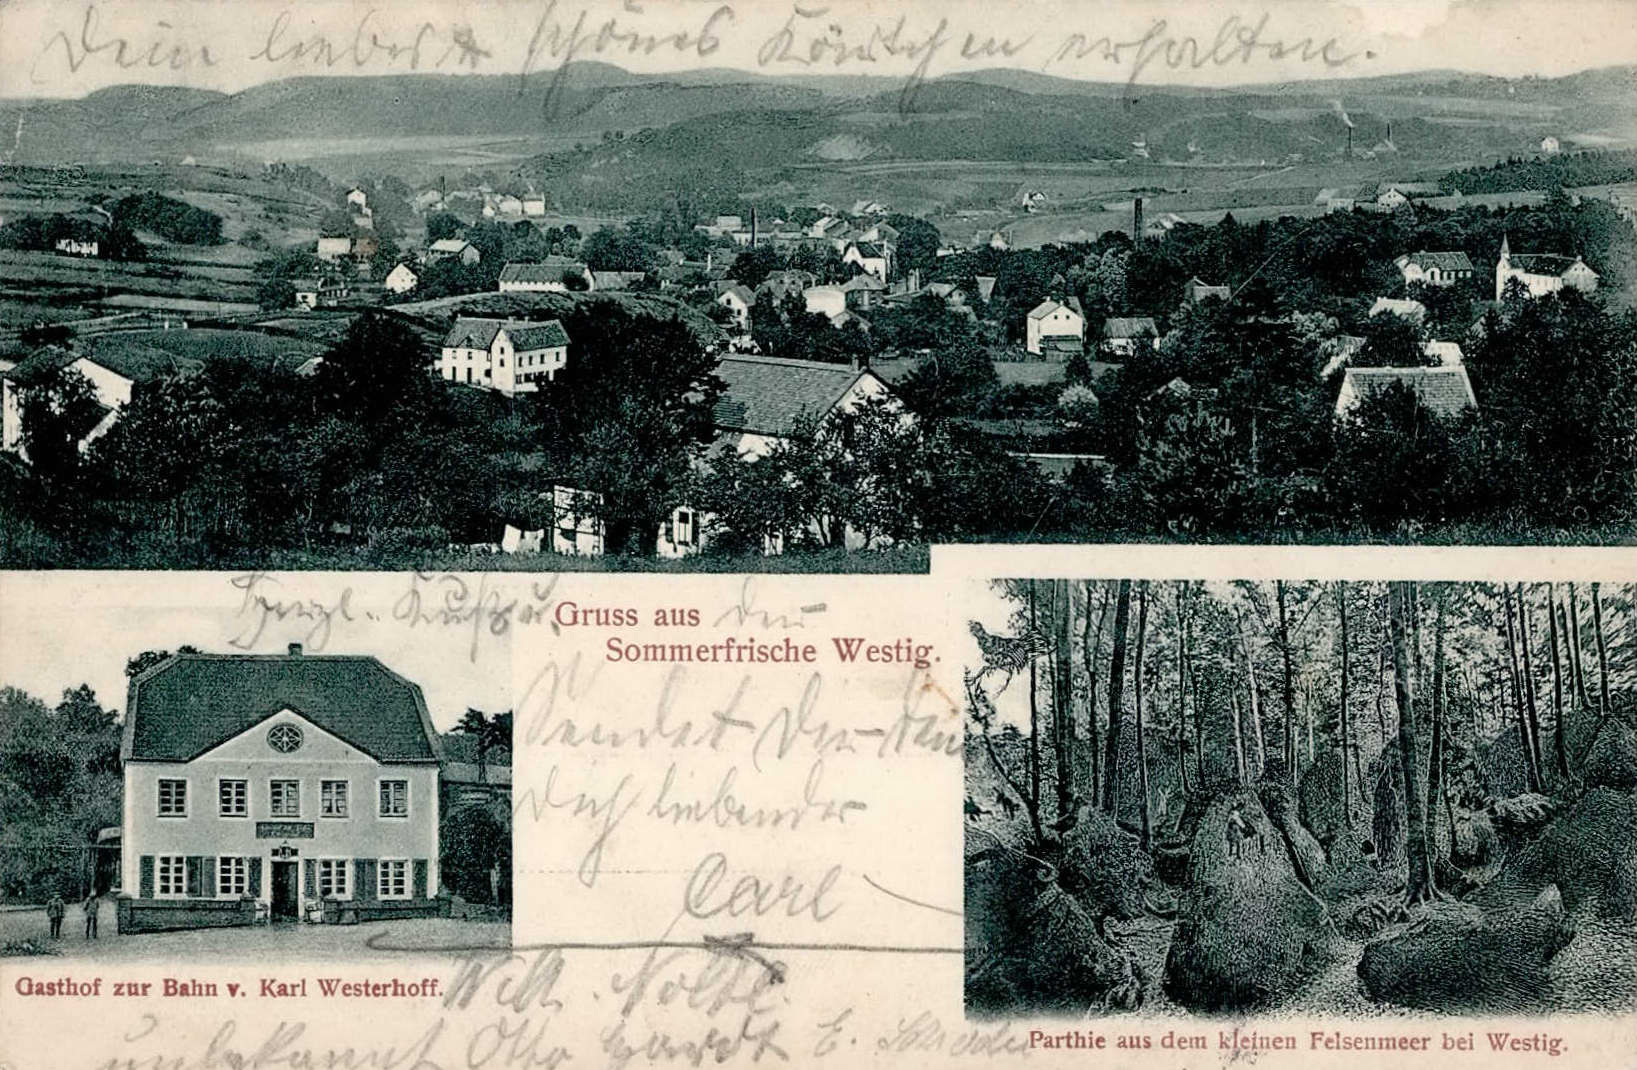 Dein liebes schönes Kärtchen erhalten.
Herzl. Kuß u.
Gruss aus der
Sommerfrische Westig.
Sendet Dir dein
Dich liebender
Carl
Gasthof zur Bahn v. Karl Westerhoff.
Wilh. Nolte.
unbekannt Otto E.
Parthie aus dem kleinen Felsenmeer bei Westig.